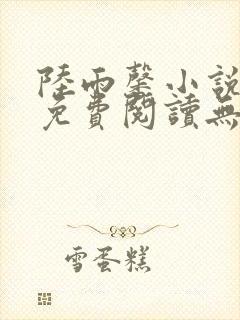 陸雨馨小說
免費閱讀無
雪蛋糕